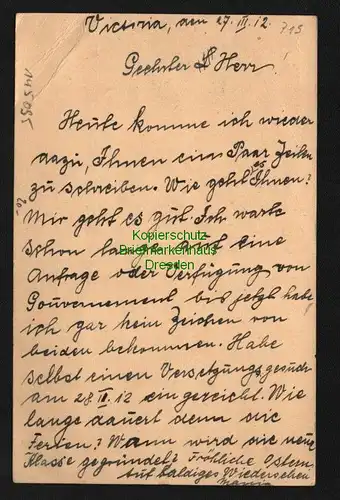 Victoria, den 27. III. 12. 715
Geehrter Herr
145095
Heute komme ich wieder
dazu, Ihnen ein Paar Zeilen
zu schreiben. Wie geht es Ihnen?
20-
Mir geht es gut. Ich warte
schon lange auf eine
Anfrage oder Verfügung von
Gouvernement bis jetzt habe
ich gar kein Zeichen von
beiden bekommen. Habe
selbst einen Versetzungsgesuch
am 28. II. 12 eingereicht. Wie
lange dauert denn die
Ferien? Wann wird die neue
Klasse gegründet? Fröhliche Ostern,
Auf baldiges Wiedersehen
Kopierschutz
Briefmarkenhaus
Dresden